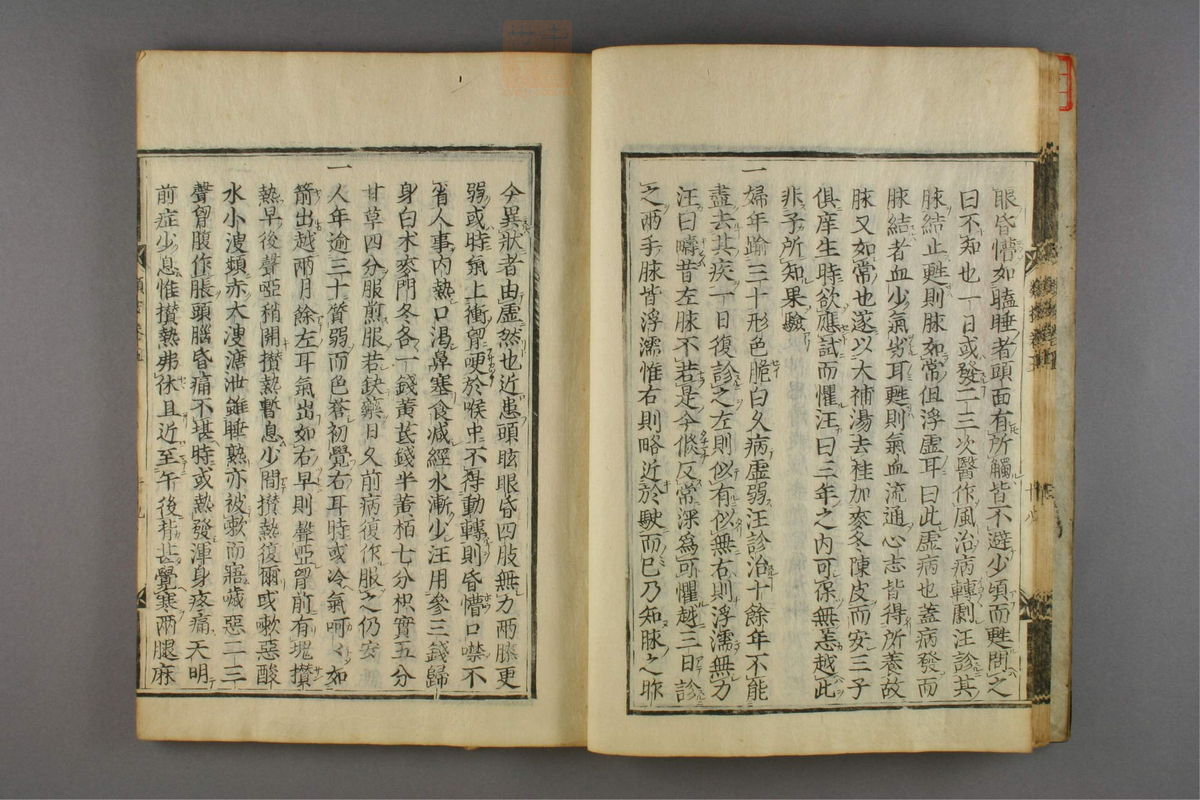 眼昏懵如瞌睡者頭面有所觸皆不避少頃而甦問之
曰不知也一日或發二三次醫作風治病轉劇汪診其
脉結止甦則脉如常但浮虛耳曰此虛病也蓋病發而
脉結者血少氣劣耳甦則氣血流通心志皆得所養故
脉又如常也遂以大補湯去桂加麥冬陳皮而安三子
俱庠生時欲應試而懼汪曰三年之內可保無恙越此
非予所知果驗
一
婦年踰三十形色脆白久病虛弱汪診治十餘年不能
盡去其疾一日復診之左則似有似無右則浮濡無力
汪曰疇昔左脉不若是今倏反常深為可懼越三日診
之兩手脉皆浮濡惟右則略近於駛而已乃知脉之昨
今異狀者由虛然也近患頭眩眼昏四肢無力兩膝更
弱或時氣上衝胷哽於喉中不得動轉則昏懵口噤不
省人事內熱口渴鼻塞食减經水漸少汪用參三錢歸
身白术麥門冬各一錢黃芪錢半黃栢七分枳實五分
甘草四分服煎服若缺藥日久前病復作服之仍安
一
人年逾三十質弱而色蒼初覺右耳時或冷氣呵々如
箭出越兩月餘左耳氣出如右早則聲啞胷前有塊攢
熱早後聲啞稍開攢熱暫息少間攢熱復爾或嗽惡酸
水小溲頻赤大溲溏泄雖睡熟亦被嗽而寤噦惡二三
聲胷腹作脹頭腦昏痛不堪時或熱發渾身疼痛天明
前症少息惟攢熱弗休且近至午後背甚覺寒兩腿麻